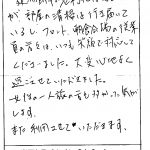 が 部屋の清掃は行き届いて
いるし、フロント、朝食会場の従業
員の方は、いつも笑顔で対応して
くださいました。大変心地よく
過ごさせていただきました。
女性の一人旅の
します。
また利用させていただきます。